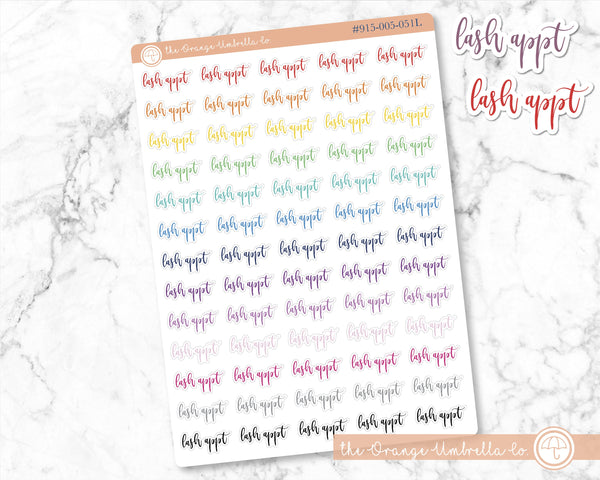 the Orange Umbrella Co. #915-005-051L
lash appt
lash appt
lash appt lash appt lash appt lash appt lash appt
lash appt lash appt lash appt lash appt lash appt
lash appt lash appt lash appt lash appt lash appt
lash appt lash appt lash appt lash appt lash appt
lash appt lash appt lash appt lash appt lash appt
lash appt lash appt lash appt lash appt lash appt
lash appt lash appt lash appt lash appt lash appt
lash appt lash appt lash appt lash appt lash appt
lash appt lash appt lash appt lash appt lash appt
lash appt lash appt lash appt lash appt lash appt
lash appt lash appt lash appt lash appt lash appt
lash appt lash appt lash appt lash appt lash appt
lash appt lash appt lash appt lash appt lash appt
the Orange Umbrella Co.